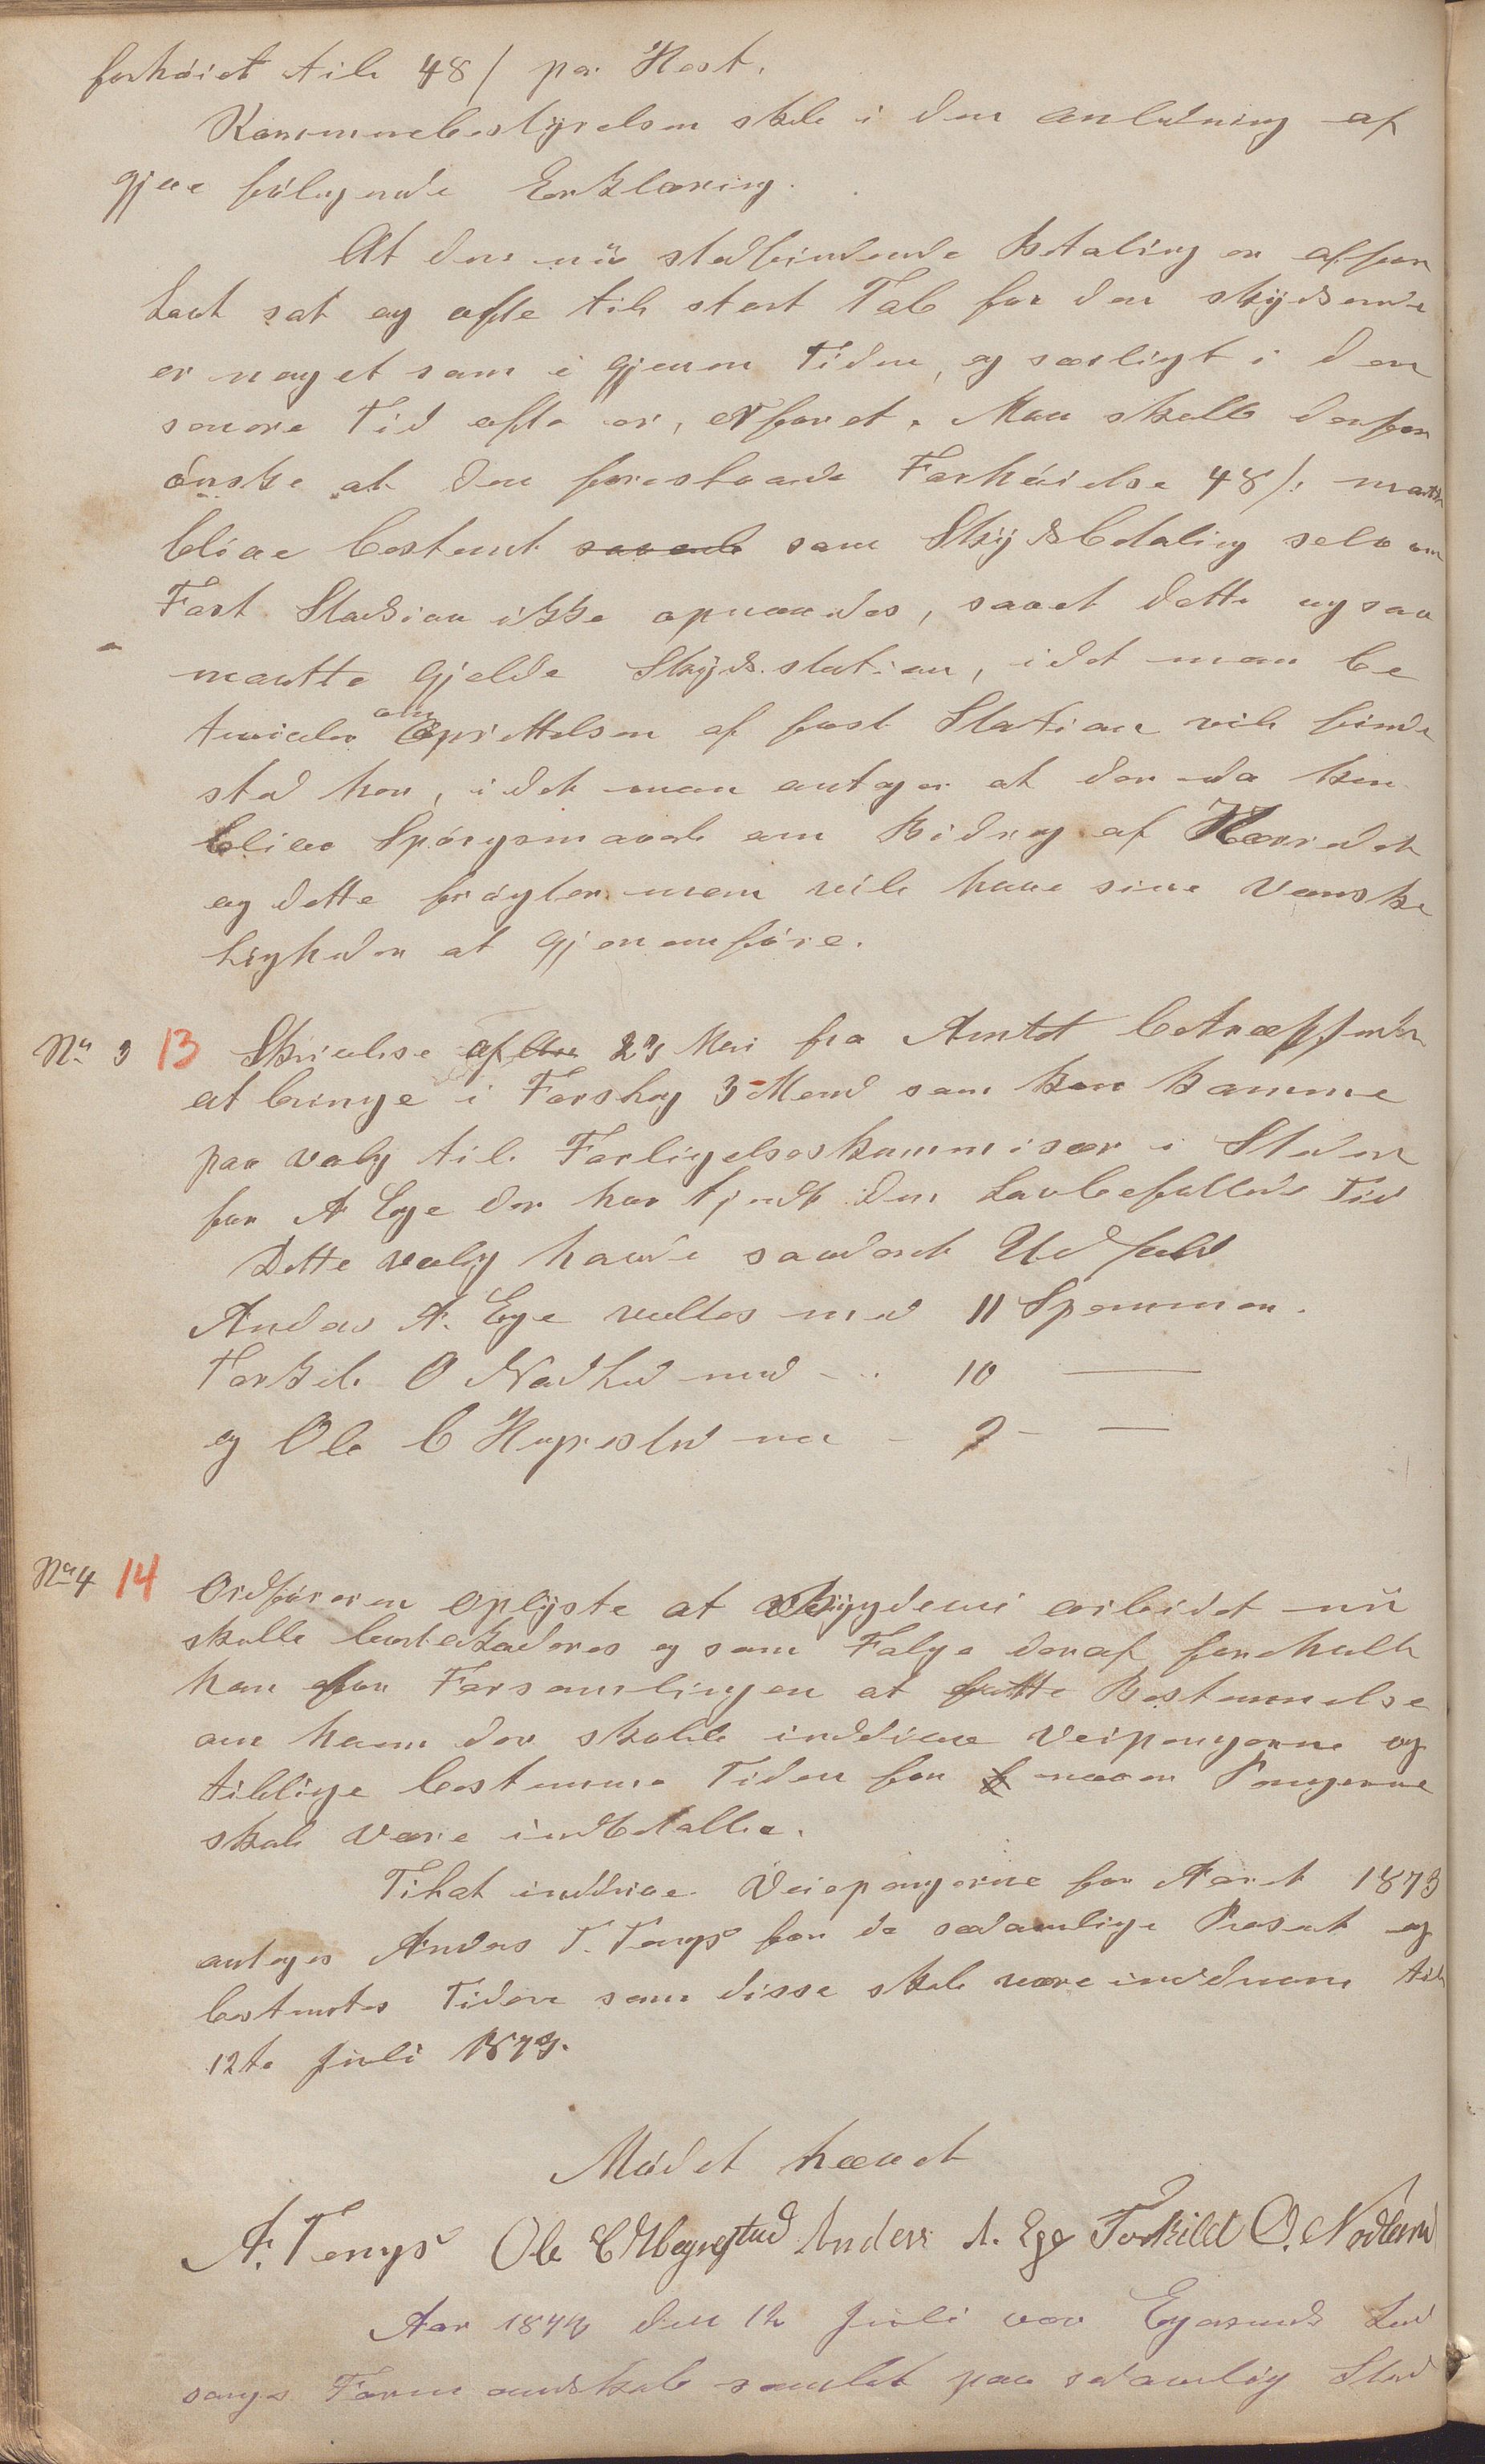 forhöiet til 48 / pr. Hest.
Kommunebestyrelsen skal i den anledning af
give følgende Erklæring.
At den nü stedfindende Betaling er alfor
Lavt sat og ofte til stort Tab for den skydsende
er noget som i gjenem Tiden, og særligt i den
senere Tid ofte er, erfaret. Man skulle derfor
önske at den forestaaende Forhöielse 48 /: maatte
blive bestemt som Skydsbetaling selv om
Fast Stasion ikke opnaaedes, saaet dette ogsaa
maatte gjelde Skydsstation, idet man be
tvivler om Oprettelsen af fast Station vil finde
sted her, idet man antager at der da kun
blive Spörgsmaal om Bidrag af Herredet
og dette frøgter man vil have sine Vanske
ligheder at gjenemföre.
No 3 13 Skrivelse af 23 Mai fra Amtet betræffende
at bringe i Forslag 3 Mend som kan komme
paa valg til Forligelseskommisær i Steden
for A Ege der har tjent den Lovbefallede Tid
Dette valg havde saadant Udfald
Anders A. Ege valtes med 11 Stemmer.
Torkel O Nodland med - 10 —
og Ole C Hegrestad me - 9 - —
No 4 14 Ordföreren oplyste at arbeidet nü
skulle og som Følge deraf foreholt
han for Forsamlingen at fatte Bestemmelse
om hvem der skulle inddrive Veipengerne og
tillige bestemme Tiden for naar Pengerne
skal være indbetalte.
Til at inddrive Veiepengerne for Aaret 1873
antoges Anders T. Tengs for de sedvanlige Procent og
bestemtes Tiden som disse skal være inddrevne til
12te Juli 1873.
Mödet hævet
A. Tengs Ole C Hegrestad Anders A. Ege Torkild O. Nodland
Aar 1873 den 12 Juli var Egersunds Land
sogns Formandskab samlet paa sedvanlig Sted